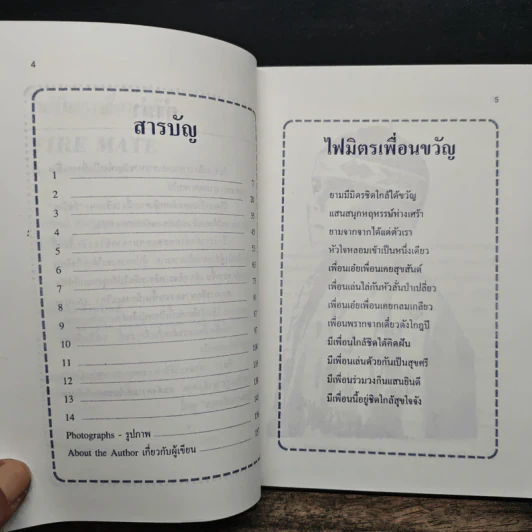 4
สารบัญ
1
2
3
4
5
6
7
8
9
10
11
12
13
14
Photographs - รูปภาพ
About the Author เกี่ยวกับผู้เขียน
5
ไฟมิตรเพื่อนขวัญ
ยามมีมิตรชิดใกล้ได้ขวัญ
แสนสนุกหฤหรรษ์ห่างเศร้า
ยามจากจากได้แต่ตัวเรา
หัวใจหลอมเข้าเป็นหนึ่งเดียว
เพื่อนเอ๋ยเพื่อนเคยสุขสันต์
เพื่อนเล่นไล่กันหัวสั่นป่าเปลี่ยว
เพื่อนเอ๋ยเพื่อนเคยกลมเกลียว
เพื่อนพรากจากเดี๋ยวดังไกฏปี
มีเพื่อนใกล้ชิดได้คิดฝัน
มีเพื่อนเล่นด้วยกันเป็นสุขศรี
มีเพื่อนร่วมวงกินแสนยินดี
มีเพื่อนนี้อยู่ชิดใกล้สุขใจจัง